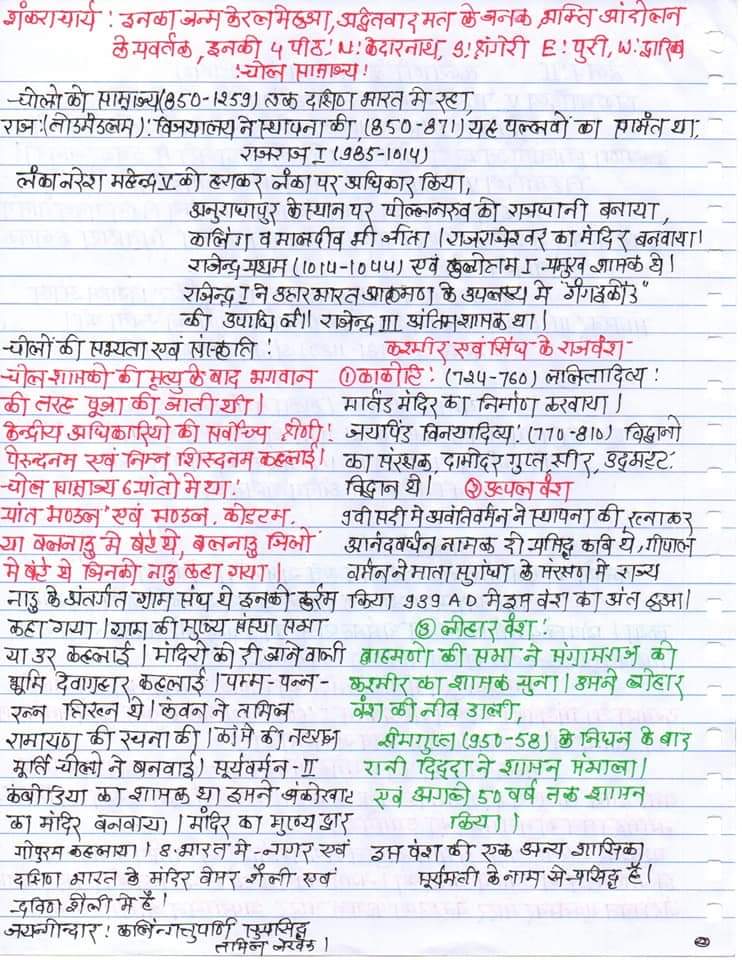 शंकराचार्य : इनका जन्म केरल मे हुआ, अद्वैतवाद मत के जनक, भक्ति आंदोलन
के प्रवर्तक, इनकी 4 पीठ: N: केदारनाथ, S: श्रंगेरी E: पुरी, W: द्वारिका
:चोल साम्राज्य:
चोलो को साम्राज्य (850-1259) तक दक्षिण भारत मे रहा,
राज: (तोडमंडलम): विजयालय ने स्थापना की, (850-871) यह पल्लवों का सामंत था,
राजराज I (985-1014)
लंका नरेश महेन्द्र V को हराकर लंका पर अधिकार किया,
अनुराधापुर के स्थान पर पोल्लनरुव को राजधानी बनाया,
कलिंग व मालदीव भी जीता। राजराजेश्वर का मंदिर बनवाया।
राजेन्द्र प्रथम (1014-1044) एवं कुलोतम I प्रमुख शासक थे।
राजेन्द्र I ने उत्तर भारत आक्रमण के उपलक्ष्य मे "गंगईकोंड"
की उपाधि ली। राजेन्द्र III अंतिम शासक था।
चोलों की सभ्यता एवं संस्कृति :
चोल शासकों की मृत्यु के बाद भगवान
की तरह पूजा की जाती थी।
केन्द्रीय अधिकारियों की सर्वोच्च श्रेणी:
पेरुन्दनम एवं निम्न शिरुदनम कहलाई।
चोल साम्राज्य 6 प्रांतो मे था:
प्रांत मण्डल एवं मण्डल, कोडटम,
या बलनाडु मे बंटे थे, बलनाडु जिलों
मे बंटे थे जिनको नाडु कहा गया।
नाडु के अंतर्गत ग्राम संघ थे इनको कुर्रम
कहा गया। ग्राम की मुख्य संस्था सभा
या उर कहलाई। मंदिरो को दी जाने वाली
भूमि देवाग्रहार कहलाई। पम्म-पन्न-
रन्न त्रिरत्न थे। कंबन ने तमिल
रामायण की रचना की। कांसे की नटराज
मूर्ति चोलों ने बनवाई। सूर्यवर्मन-II
कंबोडिया का शासक था इसने अंकोरवाट
का मंदिर बनवाया। मंदिर का मुख्य द्वार
गोपुरम कहलाया। उ. भारत मे नागर एवं
दक्षिण भारत के मंदिर वेसर शैली एवं
द्रविण शैली मे है।
जयन्गोन्दार: कलिंगत्तुपर्णि सुप्रसिद्ध
तमिल लेखक।
कश्मीर एवं सिंध के राजवंश-
① कार्कोट: (724-760) ललितादित्य:
मार्तंड मंदिर का निर्माण करवाया।
जयापिड विनयादित्य: (770-810) विद्वानो
का संरक्षक, दामोदर गुप्त, सीर, उदभट्ट:
विद्वान थे। ② उत्पल वंश
9वी सदी मे अवंतिवर्मन ने स्थापना की, रत्नाकर
आनंदवर्धन नामक दो प्रसिद्ध कवि थे, गोपाल
वर्मन ने माता सुगंधा के संरक्षण मे राज्य
किया 939 AD मे इस वंश का अंत हुआ।
③ लोहार वंश:
ब्राहमणो की सभा ने संग्रामराज को
कश्मीर का शासक चुना। इसने लोहार
वंश की नीव डाली,
क्षेमगुप्त (950-58) के निधन के बाद
रानी दिद्दा ने शासन संभाला।
एवं अगले 50 वर्ष तक शासन
किया।।
इस वंश की एक अन्य शासिका
सूर्यमती के नाम से प्रसिद्ध है।